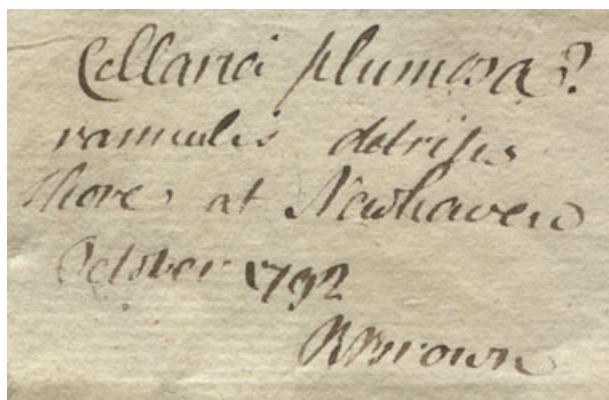 Cellaria plumosa?
ramulis detritis
shore at Newhaven
October 1792
RBrown